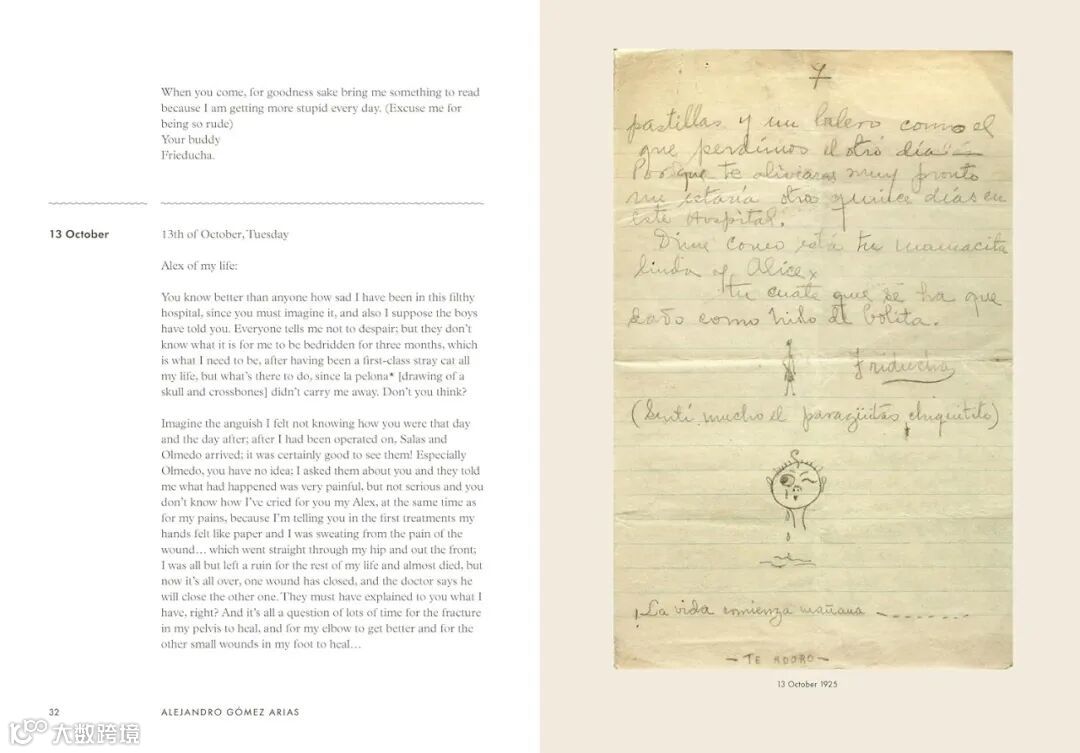 When you come, for goodness sake bring me something to read
because I am getting more stupid every day. (Excuse me for
being so rude)
Your buddy
Frieducha.
13 October
13th of October, Tuesday
Alex of my life:
You know better than anyone how sad I have been in this filthy
hospital, since you must imagine it, and also I suppose the boys
have told you. Everyone tells me not to despair; but they don't
know what it is for me to be bedridden for three months, which
is what I need to be, after having been a first-class stray cat all
my life, but what's there to do, since la pelona* [drawing of a
skull and crossbones] didn't carry me away. Don't you think?
Imagine the anguish I felt not knowing how you were that day
and the day after; after I had been operated on, Salas and
Olmedo arrived; it was certainly good to see them! Especially
Olmedo, you have no idea; I asked them about you and they told
me what had happened was very painful, but not serious and you
don't know how I've cried for you my Alex, at the same time as
for my pains, because I'm telling you in the first treatments my
hands felt like paper and I was sweating from the pain of the
wound… which went straight through my hip and out the front;
I was all but left a ruin for the rest of my life and almost died, but
now it's all over, one wound has closed, and the doctor says he
will close the other one. They must have explained to you what I
have, right? And it's all a question of lots of time for the fracture
in my pelvis to heal, and for my elbow to get better and for the
other small wounds in my foot to heal…
32
ALEJANDRO GÓMEZ ARIAS
7
pastillas y un balero como el
que perdimos el otro día
Porque te aliviaras muy pronto
me estaría otro quince días en
este Hospital.
Dime como está tu mamacita
linda y Alice
tu cuate que se ha que
dado como hilo de bolita.
Friducha
(Sentí mucho el paragüitas chiquitito)
¡La vida comienza mañana
- TE ADORO -
13 October 1925
大数跨境